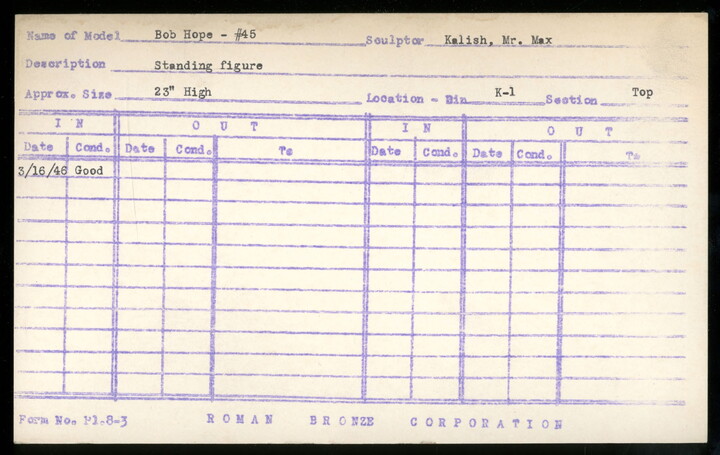 Name of Model Bob Hope - #45 Sculptor Kalish, Mr. Max
Description Standing figure
Approx. Size 23" High Location - Bin K-1 Section Top
I N O U T I N O U T
Date Cond. Date Cond. To Date Cond. Date Cond. To
3/16/46 Good
Form No. Pl.8-3 ROMAN BRONZE CORPORATION